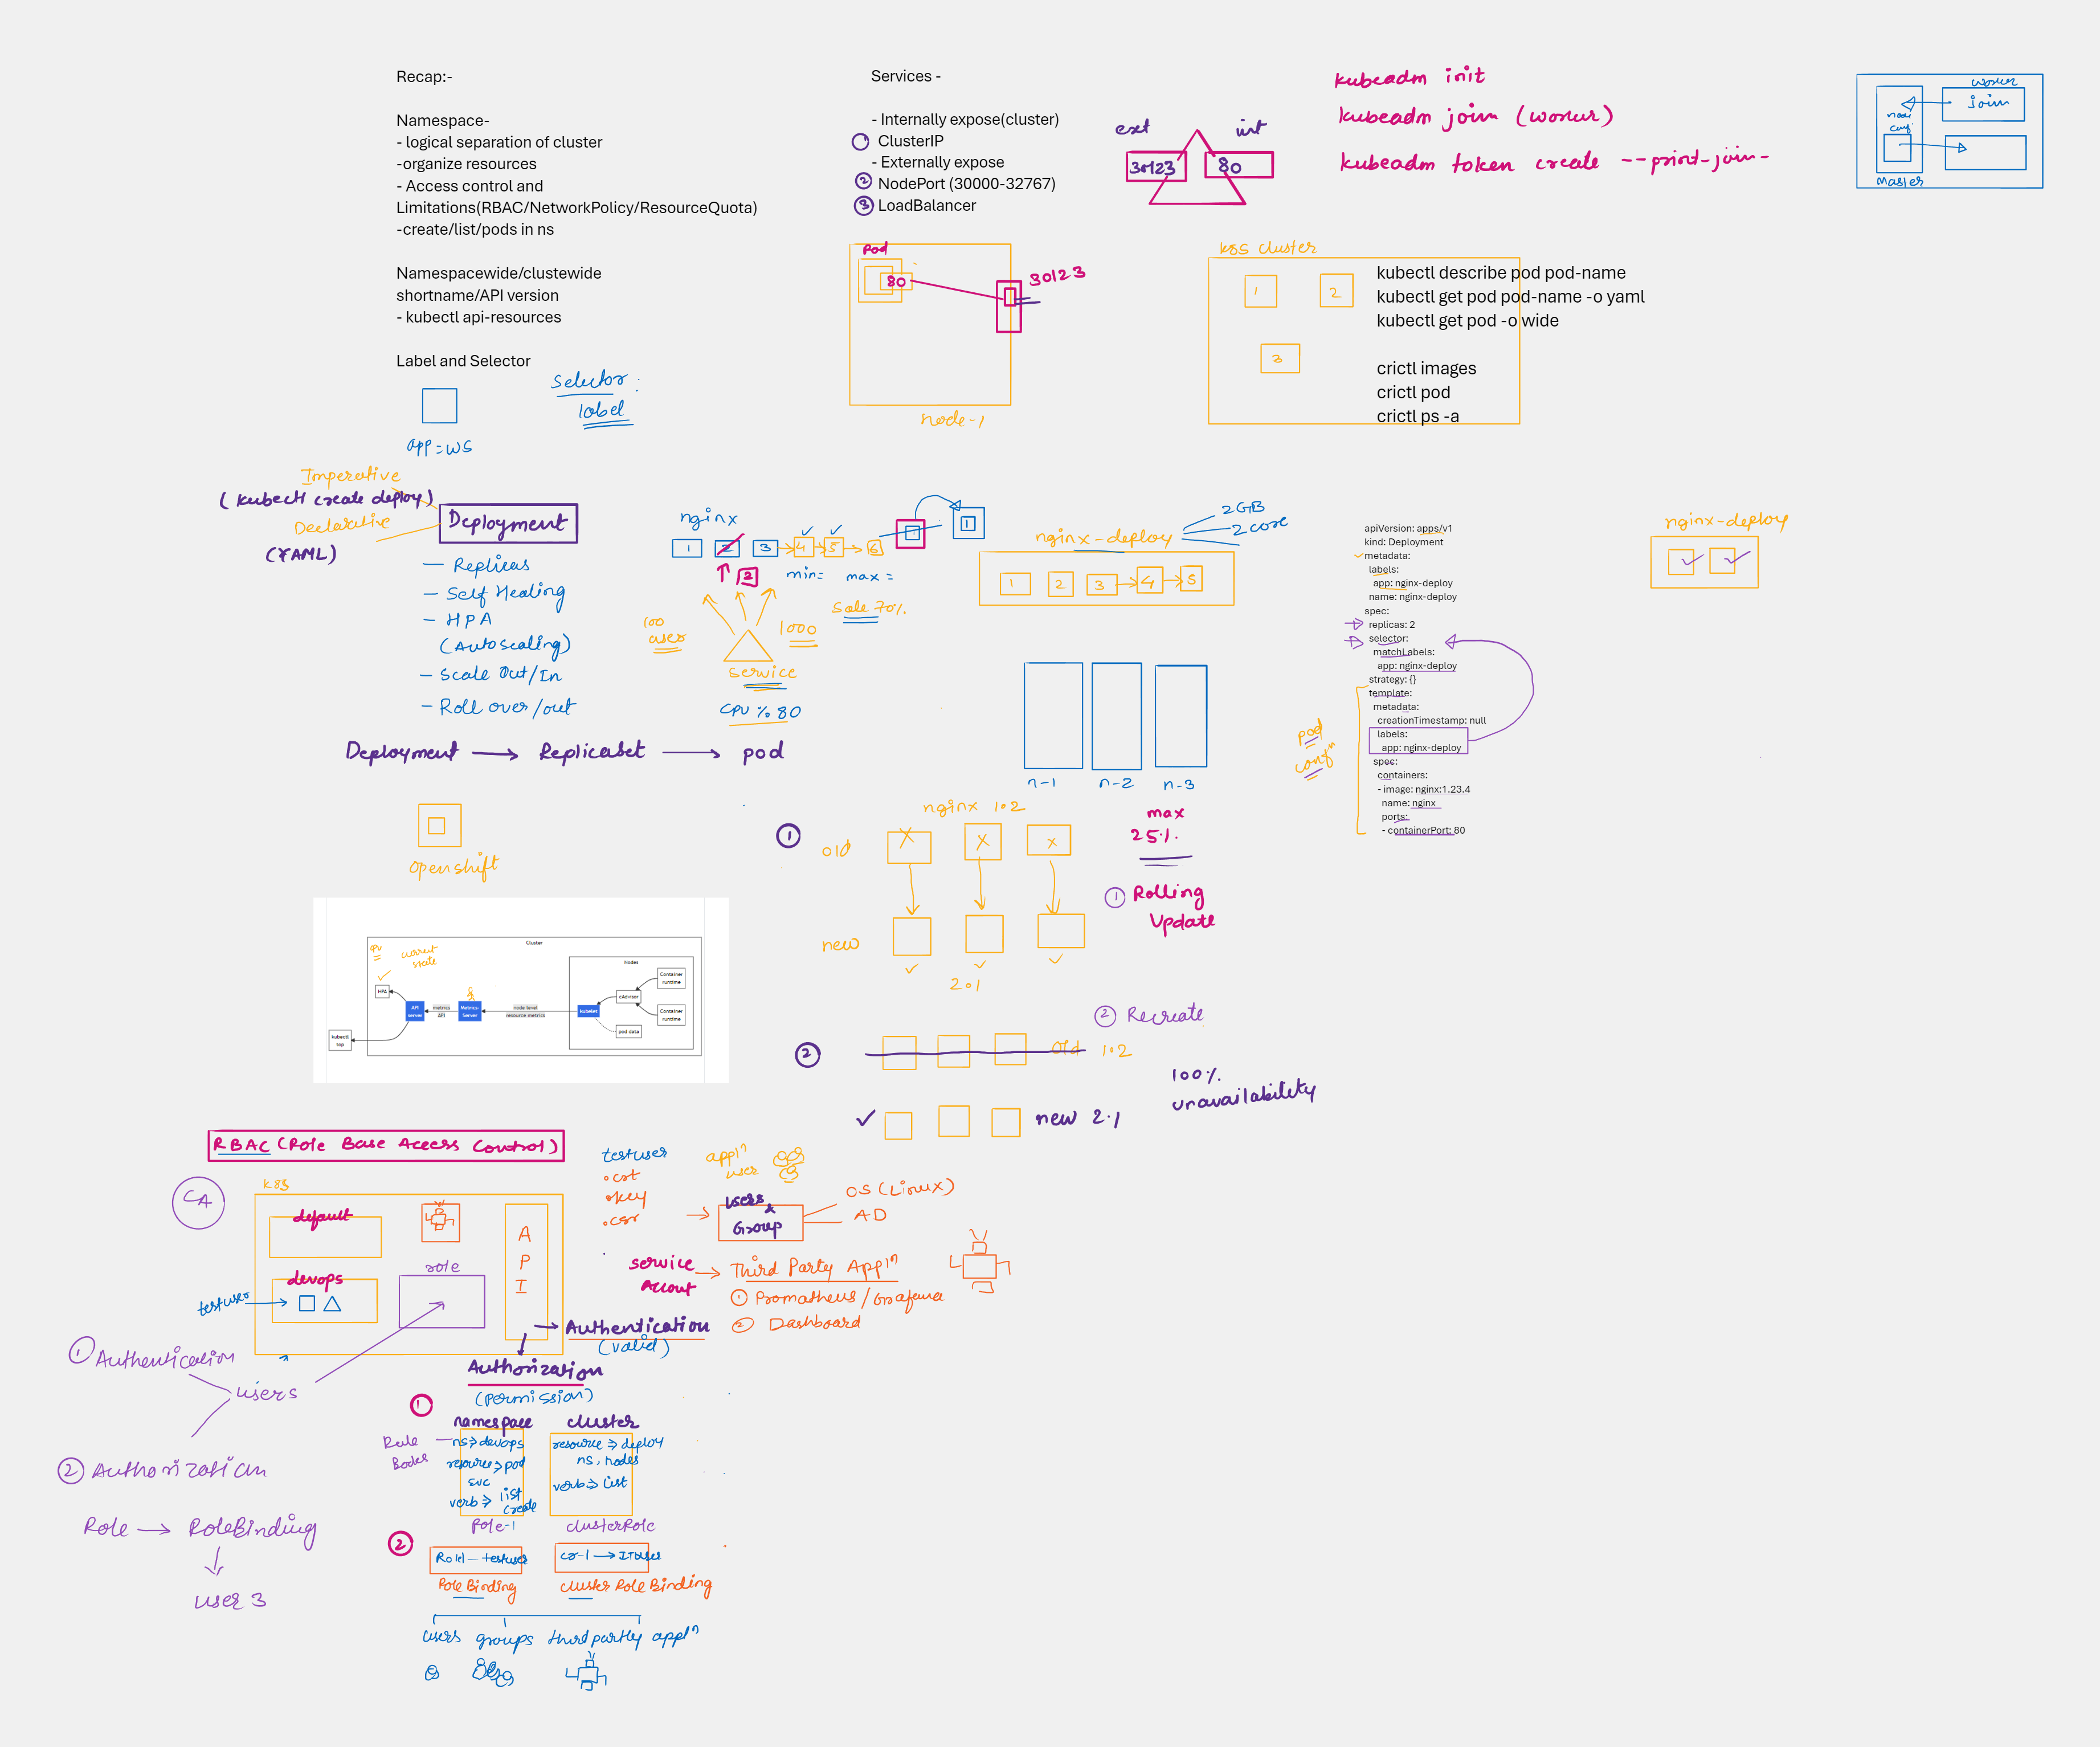 Recap:-
Namespace-
- logical separation of cluster
-organize resources
- Access control and
Limitations(RBAC/NetworkPolicy/ResourceQuota)
-create/list/pods in ns
Namespacewide/clustewide
shortname/API version
- kubectl api-resources
Label and Selector
Selector :
label
app=ws
Services -
- Internally expose(cluster)
1 ClusterIP
- Externally expose
2 NodePort (30000-32767)
3 LoadBalancer
ext
int
30123
80
kubeadm init
kubeadm join (worker)
kubeadm token create --print-join-
worker
join
Master
Pod
80
30123
node-1
k8s cluster
1
2
3
kubectl describe pod pod-name
kubectl get pod pod-name -o yaml
kubectl get pod -o wide
crictl images
crictl pod
crictl ps -a
Imperative
(kubectl create deploy)
Declarative
(YAML)
Deployment
- Replicas
- Self Healing
- HPA
(Autoscaling)
- Scale Out/In
- Roll over/out
Deployment → Replicaset → pod
nginx
1 2 3 → 4 → 5 → 6
2
min= max=
Sale 70%
100
user
1000
service
CPU % 80
1
1
nginx-deploy
2GB
2 core
1 2 3 → 4 → 5
n-1 n-2 n-3
apiVersion: apps/v1
kind: Deployment
metadata:
labels:
app: nginx-deploy
name: nginx-deploy
spec:
replicas: 2
selector:
matchLabels:
app: nginx-deploy
strategy: {}
template:
metadata:
creationTimestamp: null
labels:
app: nginx-deploy
spec:
containers:
- image: nginx:1.23.4
name: nginx
ports:
- containerPort: 80
pod
confⁿ
nginx-deploy
openshift
1
nginx 1.2
old
new
2.1
max
25%
1 Rolling
Update
2 Recreate
2
old 1.2
new 2.1
100%
unavailability
Cluster
current
state
HPA
API
server
metrics
API
Metrics-
Server
node level
resource metrics
Nodes
kubelet
cAdvisor
Container
runtime
Container
runtime
pod data
kubectl
top
RBAC (Role Base Access Control)
CA
K8S
default
devops
testuser
role
A
P
I
testuser
.crt
.key
.csr
applⁿ
user
Users
&
Group
OS (Linux)
AD
service
Account
→ Third Party Applⁿ
1 Prometheus/Grafena
2 Dashboard
→ Authentication
(valid)
Authorization
(Permission)
1 Authentication
users
2 Authorization
Role → RoleBinding
user 3
1
namespace
cluster
ns → devops
resource → pod
svc
verb → list
create
Role-1
resource → deploy
ns, nodes
verb → list
clusterRole
2
Role1 — testuser
Role Binding
cr-1 → ITUser
cluster Role Binding
users groups thirdpartly applⁿ